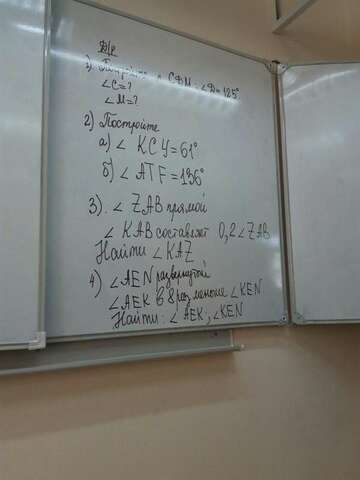 Д/р
1) Постройте △ СДМ: ∠Д=125°
∠С=?
∠М=?
2) Постройте
а) ∠ KCY=61°
б) ∠ ATF=136°
3). ∠ ZAB прямой
∠ KAB составляет 0,2∠ZAB
Найти ∠KAZ
4) ∠AEN развернутый
∠AEK в 8 раз меньше ∠KEN
Найти: ∠AEK; ∠KEN